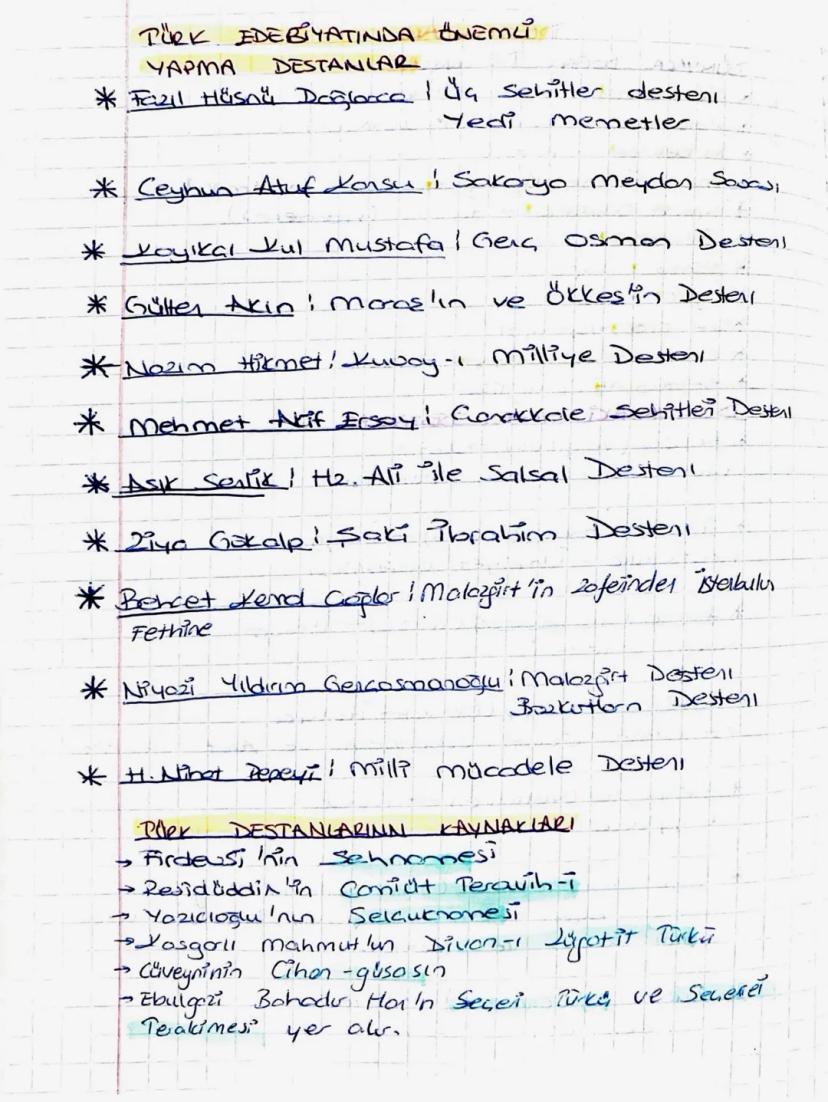 TÜRK EDEBİYATINDA ÖNEMLİ
YAPMA DESTANLAR
* Fazıl Hüsnü Dağlarca : Üç Şehitler destanı
Yedi memetler
* Ceyhun Atuf Kansu : Sakarya meydan Savaşı
* Kayıkçı Kul Mustafa : Genç Osman Destanı
* Gülten Akın : maraş'ın ve Ökkeş'in Destanı
* Nazım Hikmet : Kuvay-ı milliye Destanı
* Mehmet Akif Ersoy : Çanakkale Şehitleri Destanı
* Aşık Şenlik : Hz. Ali ile Salsal Destanı
* Ziya Gökalp : Şaki İbrahim Destanı
* Behçet Kemal Çağlar : Malazgirt'in zaferinden İstanbulun
Fethine
* Niyazi Yıldırım Gençosmanoğlu : Malazgirt Destanı
Bozkurtların Destanı
* H. Nihat Pepeyi : milli mücadele Destanı
TÜRK DESTANLARININ KAYNAKLARI
→ Firdevsi'nin Şehnamesi
→ Reşidüddin'in Camiüt Teravih-i
→ Yazıcıoğlu'nun Selçuknamesi
→ Kaşgarlı mahmut'un Divan-ı Lügatit Türkü
→ Cüveyninin Cihan-güşasın
→ Ebulgazi Bahadır Han'ın Şecerei Türkü ve Şecerei
Terakimesi yer alır.